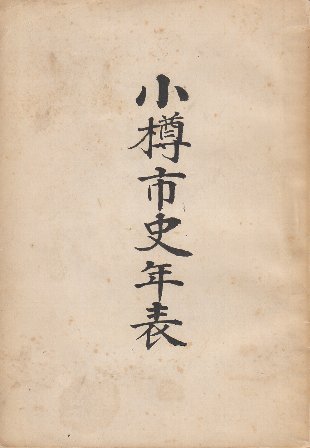 小樽市史年表